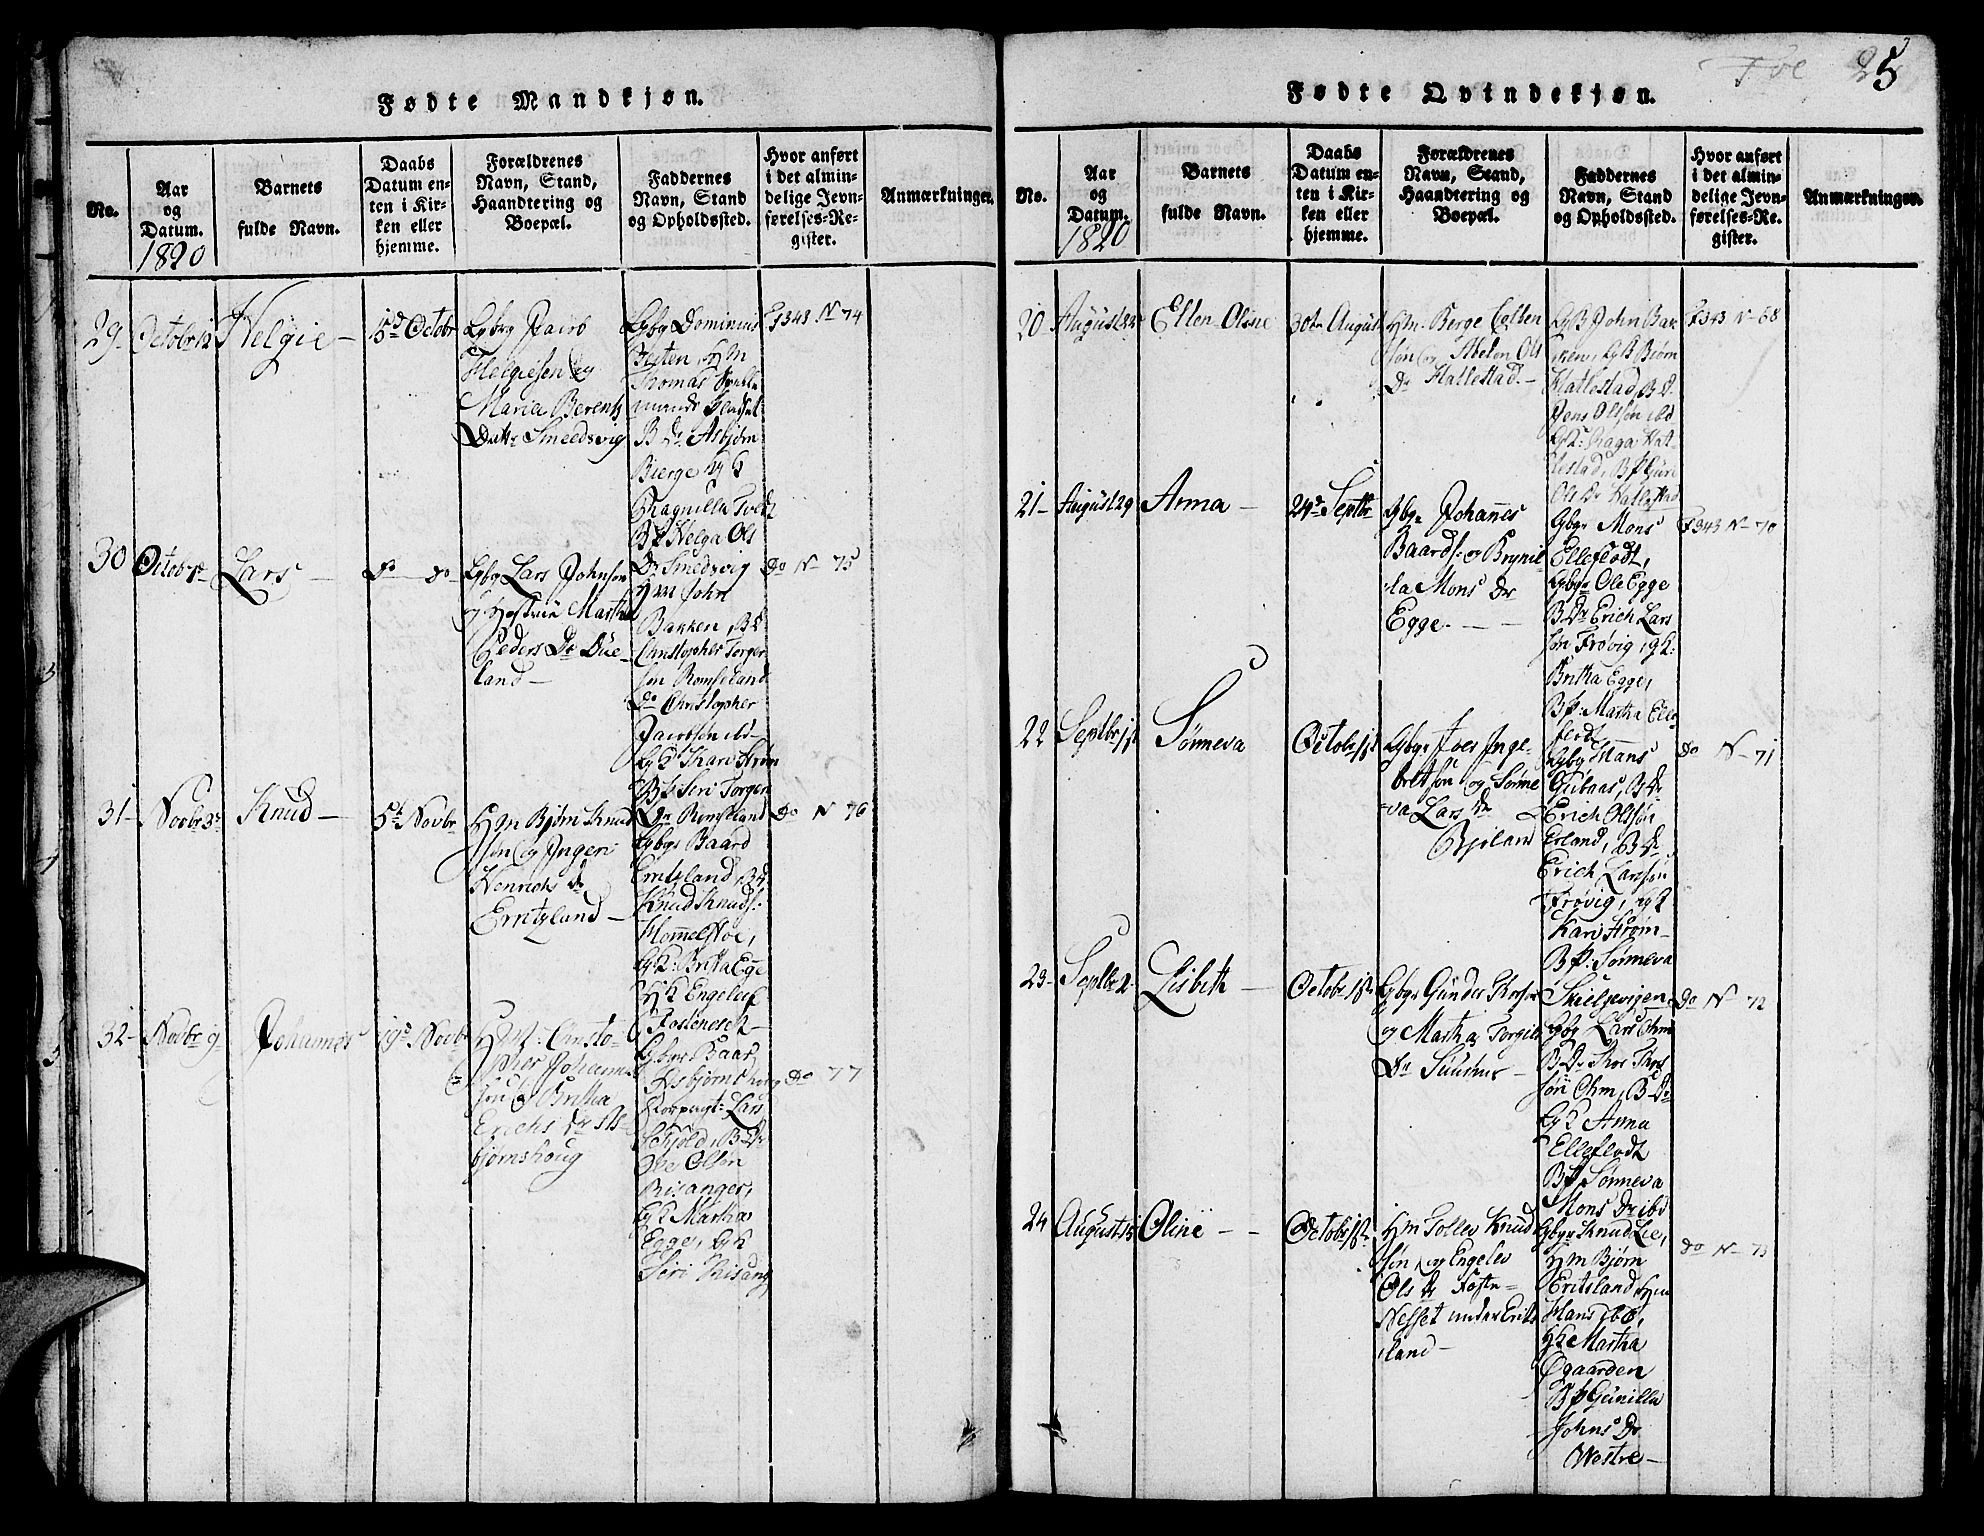 Fødte Mandkjøn.
No.
Aar
og
Datum.
1820
Barnets
fulde Navn.
Daabs
Datum en-
ten i Kir-
ken eller
hjemme.
Forældrenes
Navn, Stand,
Haandtering og
Boepæl.
Faddernes
Navn, Stand
og Opholdssted.
Hvor anført
i det almin-
delige Jevn-
førelses-Re-
gister.
Anmærkninger.
29
Helgie
5d Octobr
Gbgr Jacob
Helgiesen og
Maria Berents
Dattr Smedsvig
Thomas
Bdr Asbjørn
Bierge
Ragnilla
Bp Helga Ols
Dr Smedsvig
F343 No 74
30
Lars
do do
Gbgr Lars Johnsen
og Hustrue Martha
Peders Dr Due-
land
Hm John
Bakken, Bd
Christopher Torger
søn Romseland
do Christopher
Jacobsen ibd
Bp Seri Torger
Dr Romseland
do No 75
31
Novbr 3
Knud
5t Novbr
Hm Bjørn Knud
søn og Inger
Henrichs dr
Eritzland
Gbgr Baard
Eritzland, Bd
Knud Knuds:
Hommelstoe,
Gk: Britta Ege
Hk Engelef
Fosteneset
do No 76
32
Novbr 9
Johannes
19d Novbr
Hm: Christo-
pher Johannes
søn og Britha
Erichs dr As-
bjørnshoug
Gbgr Baar
Asbjørnshoug
Lars
Ole Olsøn
Risanger,
Gk Martha
Egge, Gk
Seri Risang
do 77
Fødte Qvindekjøn.
25
No.
Aar
og
Datum.
1820
Barnets
fulde Navn.
Daabs
Datum en-
ten i Kir-
ken eller
hjemme.
Forældrenes
Navn, Stand,
Haandtering og
Boepæl.
Faddernes
Navn, Stand
og Opholdssted.
Hvor anført
i det almin-
delige Jevn-
førelses-Re-
gister.
Anmærkninger.
20
Ellen Oline
30te August
Hm. Berge
søn og Abelon Ols
Dr Hatlestad
GB John Bak
ken, GB Bjørn
Hatlestad, Bd
Jens Olsøn ibd
Gk: Raga Hat-
lestad, Bp Guri
Ols Dr Hatlestad
F343 No 68
21
August 29
Anna
24d Septbr
Gbgr Johannes
Baards: og Brynil
la Mons Dr
Egge
Gbgr Mons
Elleflodt,
Gbgr Ole Egge
B Dr Erich Lars
søn Frøvig, gk:
Britha Egge,
Bp: Martha Elle
flodt
F343 No 70
22
Septbr
Sønneva
October 1st
Gbgr Iver Inge-
bretsøn og Sønne
va Lars dr
Bjeland
Gbgr Mans
Gubaas, B Dr
Erich Olsøn
Erland, B Dr
Erich Larssøn
Frøvig, Gk
Kari Strøm
Bp: Sønneva
Skieljevigen
do No 71
23
Septbr 2
Lisbeth
Octobr 1ste
Gbgr Gunder Thorsen
og Martha Torgils
Dr
Gbgr Lars Ohm
B Dr Thor Thors
søn Ohm, B Dr
Gk Anna
Elleflodt
Bp Sønneva
Mons Dr ibd
do No 72
24
August 15
Oline
Octobr 1ste
Hm Tollev Knud
søn og Engelev
Ols Dr Foste-
Nesset under Erits
land
Gbgr Knud Lie,
Hm Bjørn
Eritsland Hm
Hans ibd,
Hk Martha
Øgaarden
Bp Gunilla
Johns Dr
Westre
do No 73